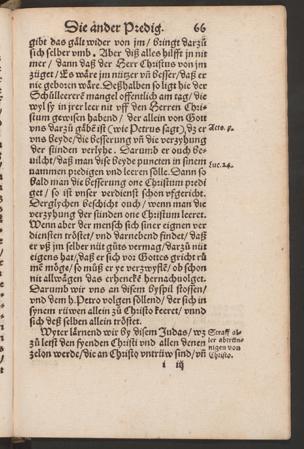 Die ander Predig. 66
gibt das gält wider von jm / bringt darzů
sich selber vmb. Aber diß alles hilfft jn nit
mer / dann daß der Herr Christus von jm
züget / Es wäre jm nützer vñ besser / daß er
nie geboren wäre. Deßhalben so ligt hie der
Schůlleerer mangel offentlich am tag / die
wyl sy in jrer leer nit vff den Herren Chri-
stum gewisen habend / der allein von Gott
vns darzů gäbē ist (wie Petrus sagt) / dz er
Acto. 5.
vns beyde / die besserung vñ die verzyhung
der sünden verlyhe. Darumb er ouch be-
uilcht / daß man dise beyde puncten in sinem
Luc. 24.
nammen predigen vnd leeren sölle. Dann so
bald man die besserung one Christum predi
get / so ist vnser verdienst schon vfgericht.
Derglychen beschicht ouch / wenn man die
verzyhung der sünden one Christum leeret.
Wenn aber der mensch sich siner eignen ver
diensten tröstet / vnd darnebend findet / daß
er vß jm selber nüt gůts vermag / darzů nüt
eigens hat / daß er sich vor Gottes gricht rů
mē möge / so můß er ye verzwyflē / ob schon
nit allwägen das erhencke hernachuolget.
Darumb wir vns an disem byspil stoffen /
vnd dem h. Petro volgen söllend / der sich in
synem rüwen allein zů Christo keeret / vnnd
sich deß selben allein tröstet.
Wyter lärnend wir by disem Judas / wz
Straff al-
zů letst den fyenden Christi vnd allen denen
ler abtrün-
nigen von
zelon werde / die an Christo vntrüw sind / vñ
Christo.
i iij